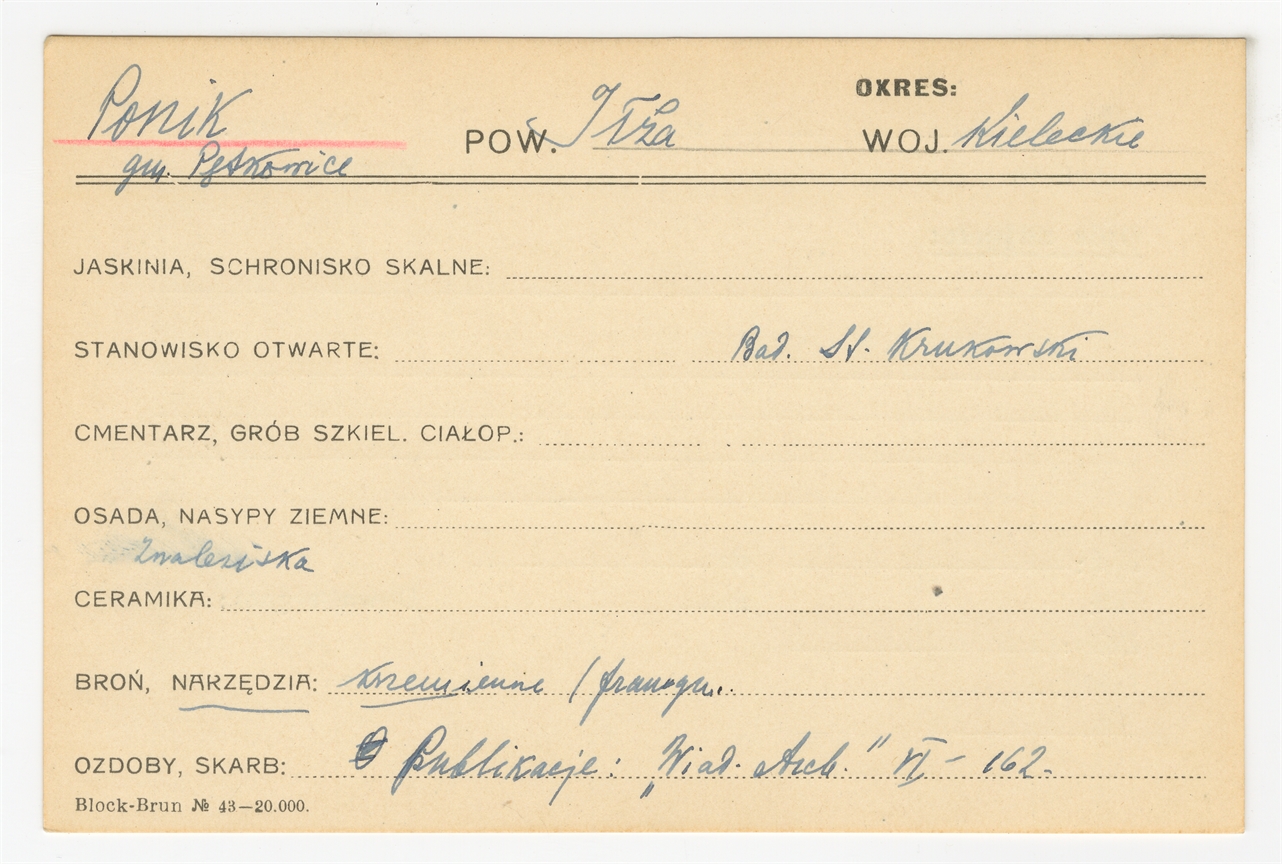 OKRES:
Ponik POW. Iłża WOJ. Kieleckie
gm. Pętkowice
JASKINIA, SCHRONISKO SKALNE:
STANOWISKO OTWARTE: Bad. St. Krukowski
CMENTARZ, GRÓB SZKIEL. CIAŁOP.:
OSADA, NASYPY ZIEMNE:
Znaleziska
CERAMIKA:
BROŃ, NARZĘDZIA: krzemienne /
OZDOBY, SKARB: Publikacje: „Wiad. Arch." VI – 162.
Block-Brun № 43—20.000.